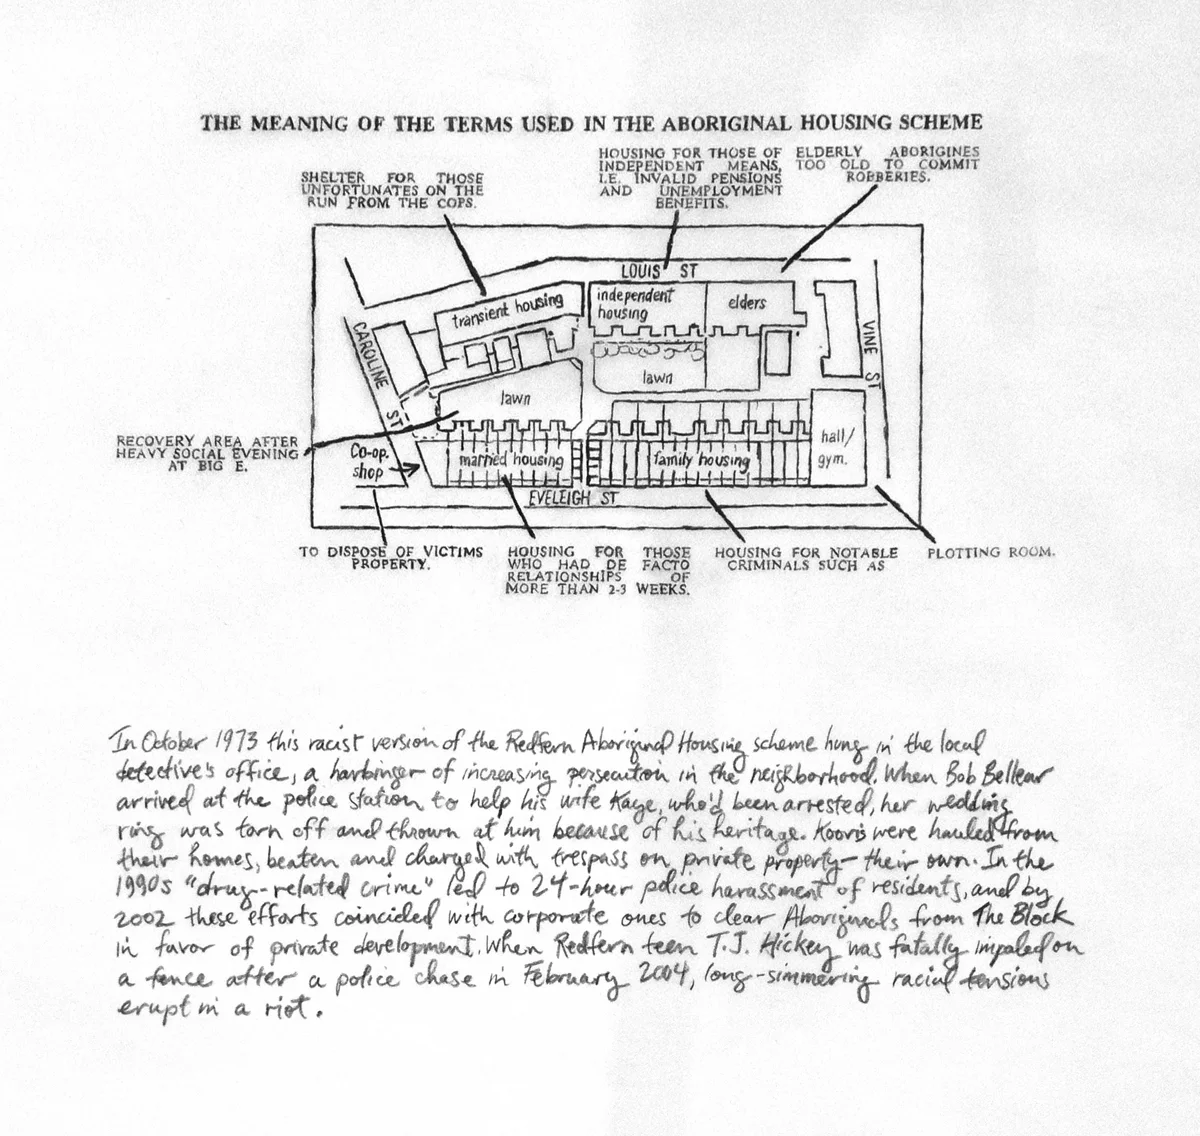 THE MEANING OF THE TERMS USED IN THE ABORIGINAL HOUSING SCHEME
SHELTER FOR THOSE
UNFORTUNATES ON THE
RUN FROM THE COPS.
HOUSING FOR THOSE OF
INDEPENDENT MEANS,
I.E. INVALID PENSIONS
AND UNEMPLOYMENT
BENEFITS.
ELDERLY ABORIGINES
TOO OLD TO COMMIT
ROBBERIES.
LOUIS ST
transient housing
independent
housing
elders
CAROLINE ST
VINE ST
lawn
lawn
RECOVERY AREA AFTER
HEAVY SOCIAL EVENING
AT BIG E.
Co-op.
shop
married housing
family housing
hall/
gym.
EVELEIGH ST
TO DISPOSE OF VICTIMS
PROPERTY.
HOUSING FOR THOSE
WHO HAD DE FACTO
RELATIONSHIPS OF
MORE THAN 2-3 WEEKS.
HOUSING FOR NOTABLE
CRIMINALS SUCH AS
PLOTTING ROOM.
In October 1973 this racist version of the Redfern Aboriginal Housing scheme hung in the local
detective's office, a harbinger of increasing persecution in the neighborhood. When Bob Bellear
arrived at the police station to help his wife Kaye, who'd been arrested, her wedding
ring was torn off and thrown at him because of his heritage. Kooris were hauled from
their homes, beaten and charged with trespass on private property - their own. In the
1990s "drug-related crime" led to 24-hour police harassment of residents, and by
2002 these efforts coincided with corporate ones to clear Aboriginals from The Block
in favor of private development. When Redfern teen T.J. Hickey was fatally impaled on
a fence after a police chase in February 2004, long-simmering racial tensions
erupt in a riot.